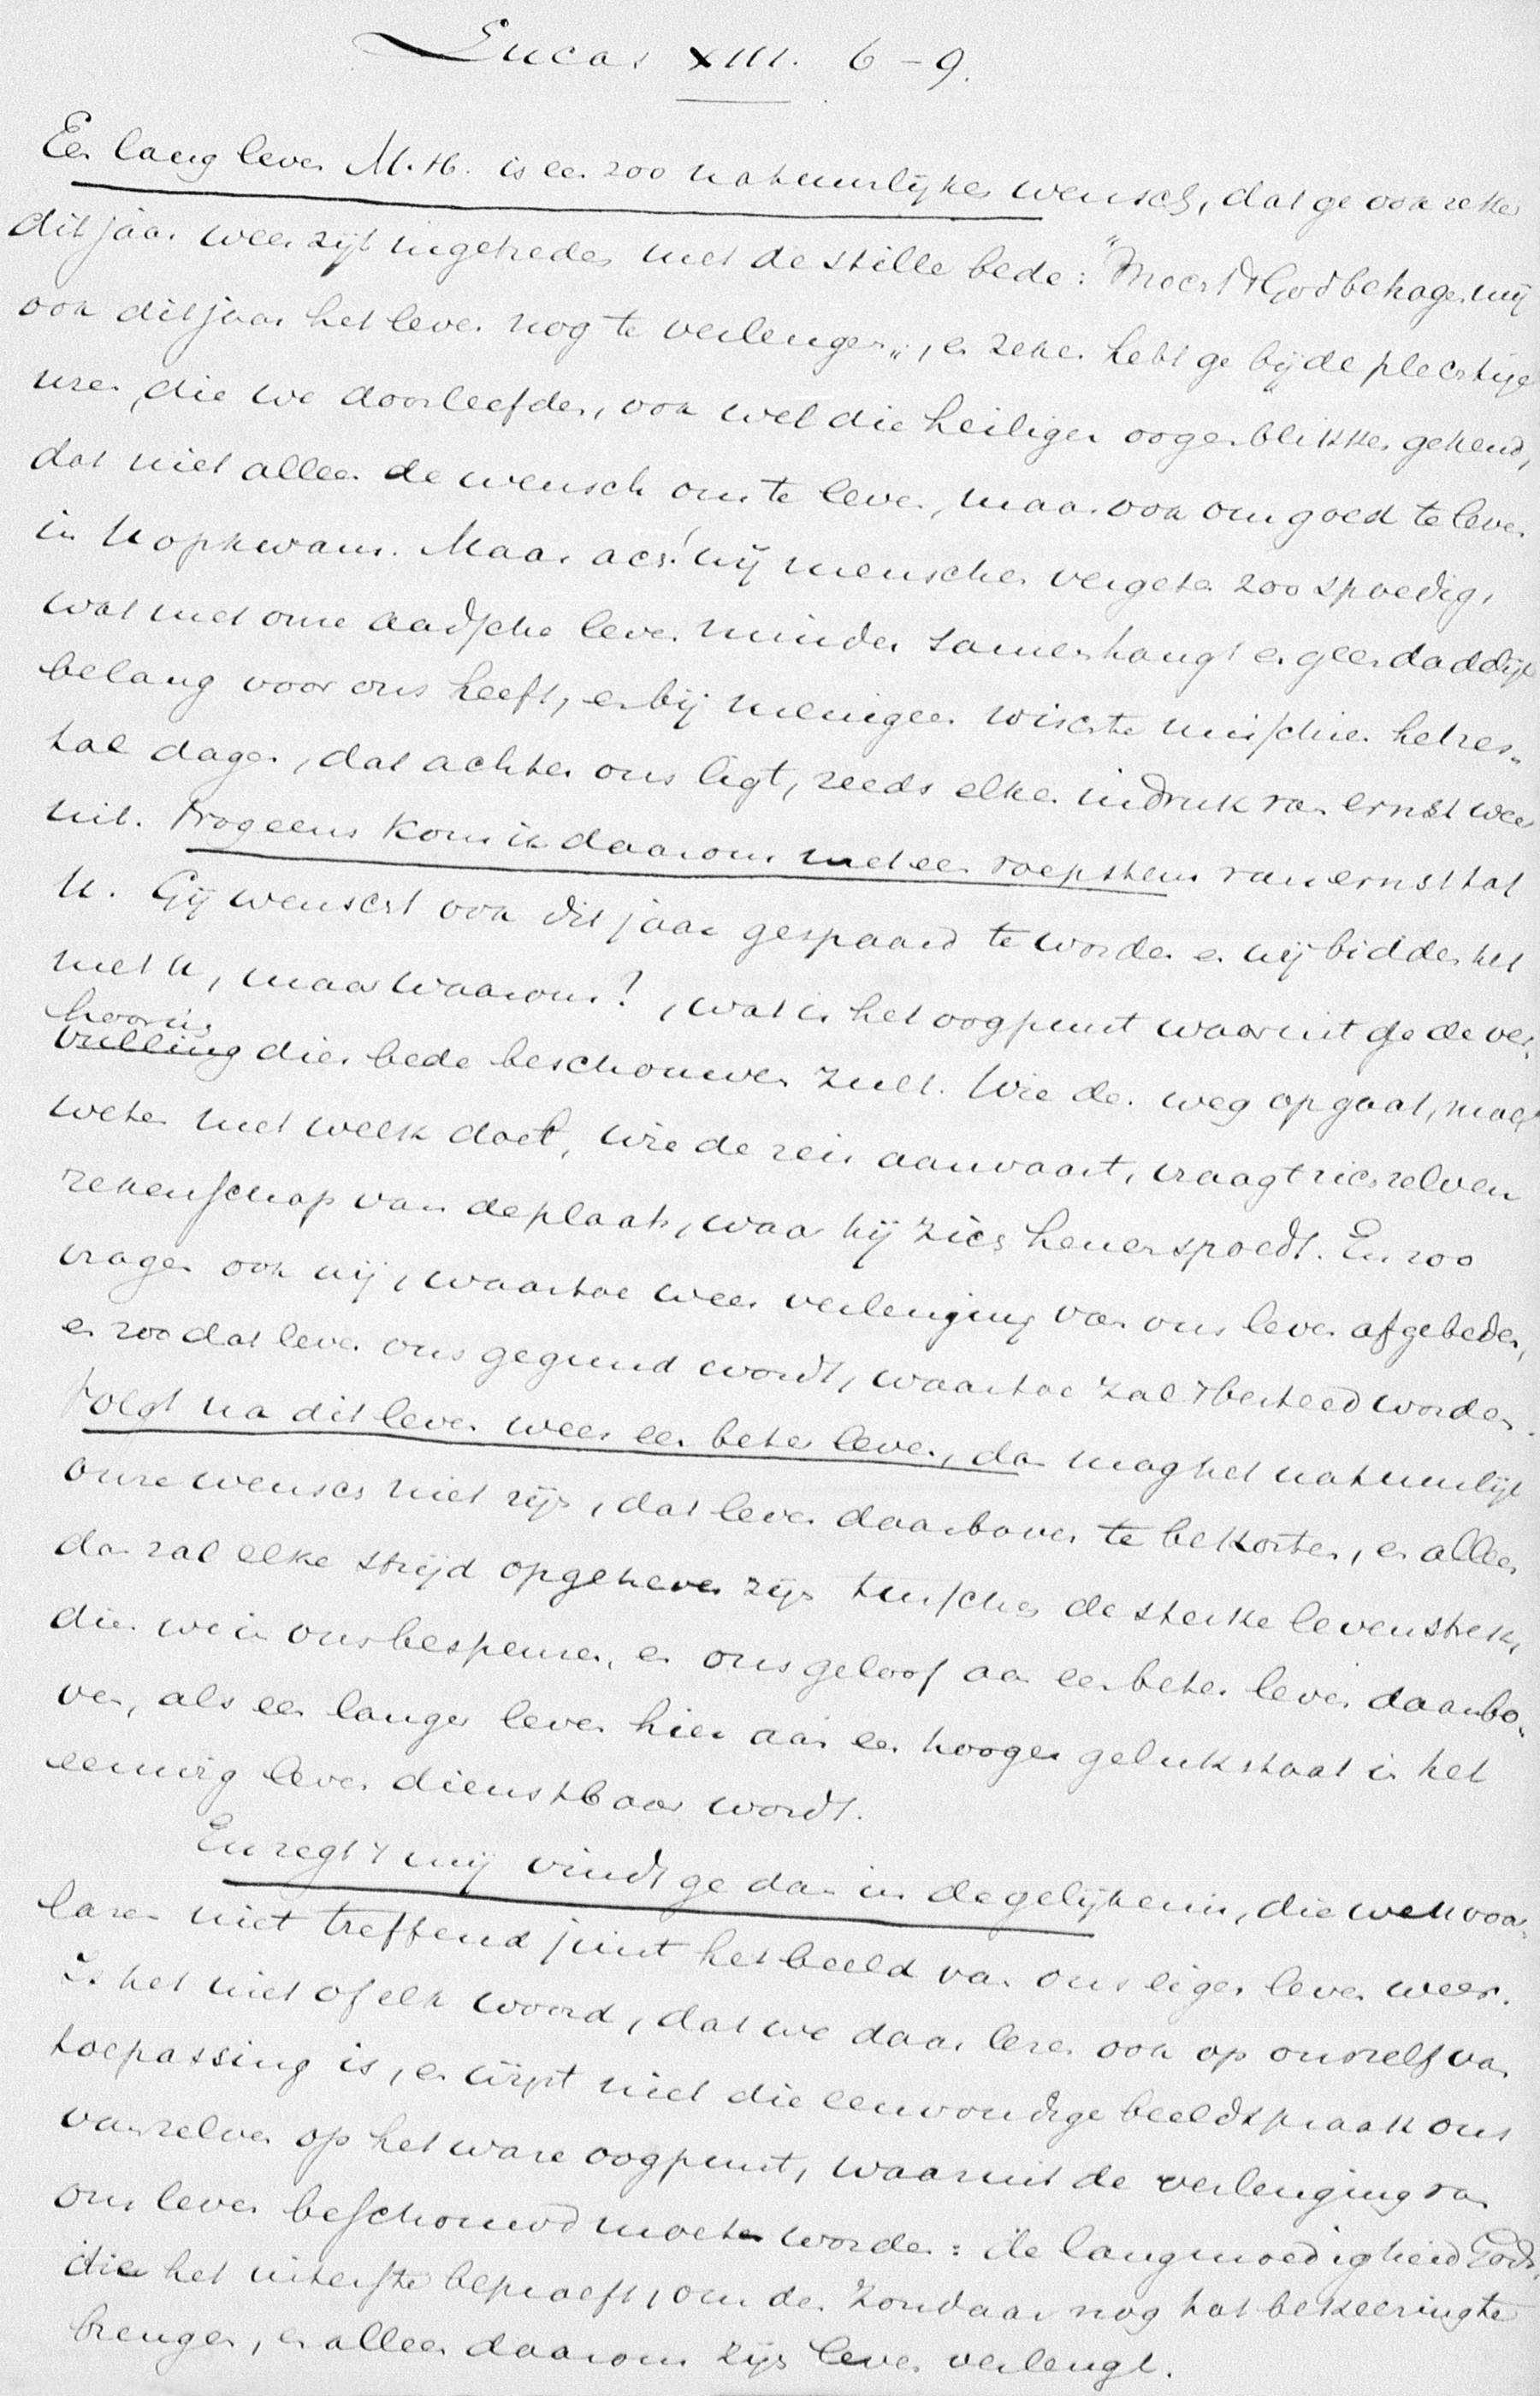 Lucas XIII. 6-9.
Een lang leven M.H. is een zoo natuurlijke wensch, dat ge ook zeker
dit jaar weer zijt ingetreden met de stille bede: "Mocht 't God behagen mij
ook dit jaar het leven nog te verlengen", en zeker hebt ge bij de plechtige
uren, die we doorleefden, ook wel die heilige oogenblikken gekend,
dat niet alleen de wensch om te leven, maar ook om goed te leven
in U opkwam. Maar ach! wij menschen vergeten zoo spoedig,
wat met onze aardsche leven minder samenhangt en geen dadelijk
belang voor ons heeft, en bij menigeen wischte misschien het zes-
tal dagen, dat achter ons ligt, reeds elken indruk van ernst weer
uit. Nog eens kom ik daarom met een roepstem van ernst tot
U. Gij wenscht ook dit jaar gespaard te worden en wij bidden het
met U, maar waarom?, wat is het oogpunt waaruit ge de ver-
hooring
vulling dier bede beschouwen zult. Wie den weg opgaat, mag
weten met welk doel, wie de reis aanvaart, vraagt zich zelven
rekenschap van de plaats, waar hij zich henen spoedt. En zoo
vragen ook wij, waartoe weer verlenging van ons leven afgebeden,
en zoo dat leven ons gegund wordt, waartoe zal 't besteed worden.
Volgt na dit leven weer een beter leven, dan mag het natuurlijk
onze wensch niet zijn, dat leven daarboven te bekorten, en alleen
dan zal elke strijd opgeheven zijn tusschen de sterke levenstrek,
dien we in ons bespeuren, en ons geloof aan een beter leven daarbo-
ven, als een langer leven hier aan een hooger gelukstaat in het
eeuwig leven dienstbaar wordt.
En zegt 't mij vindt ge dan in de gelijkenis, die we U voor-
lazen niet treffend juist het beeld van ons eigen leven weer.
Is het niet of elk woord, dat we daar lezen ook op onszelf van
toepassing is, en wijst niet die eenvoudige beeldspraak ons
van zelven op het ware oogpunt, waaruit de verlenging van
ons leven beschouwd moet worden: de langmoedigheid Gods,
die het uiterste beproeft, om den zondaar nog tot bekeering te
brengen, en alleen daarom zijn leven verlengt.